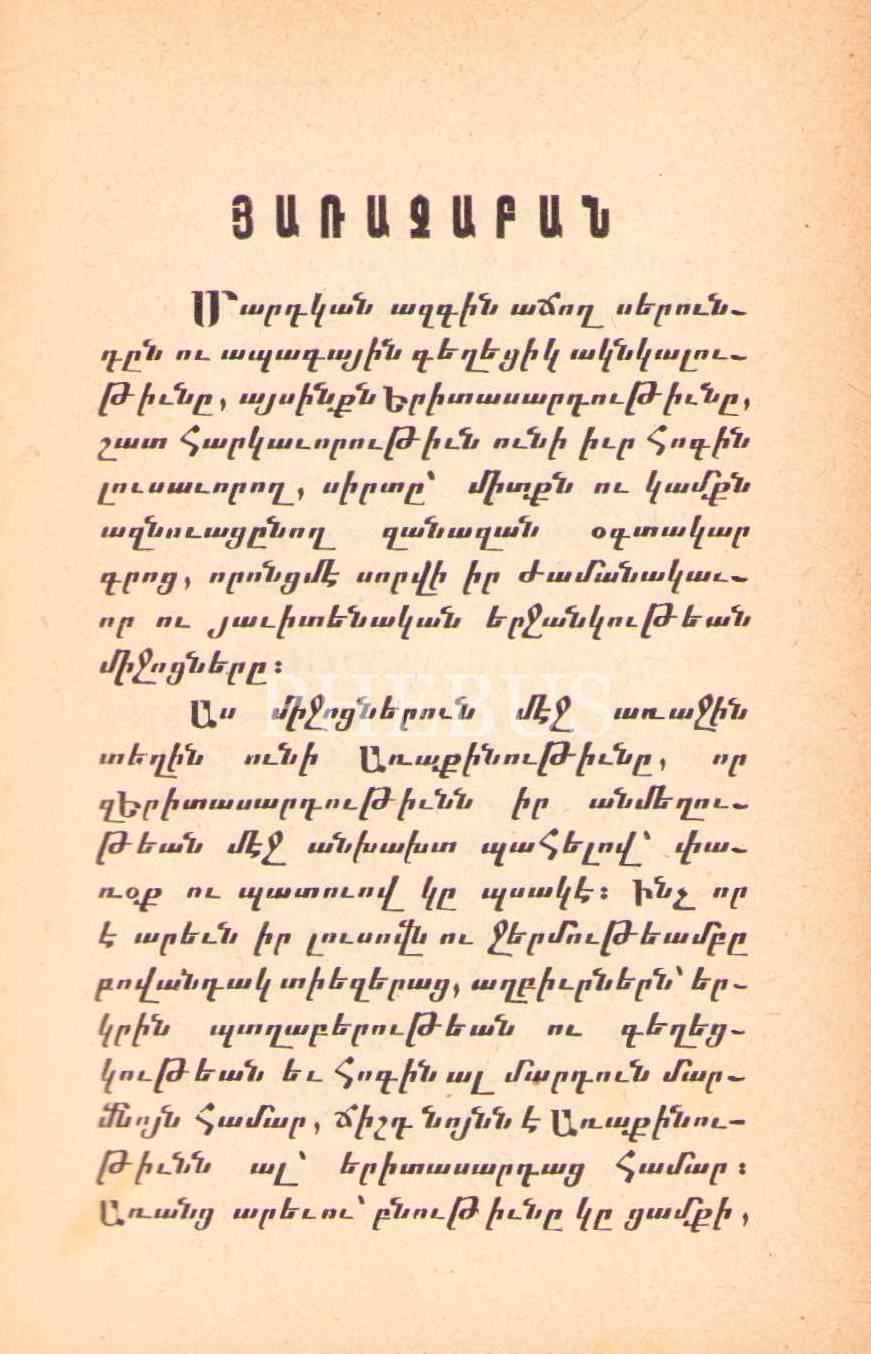 ՅԱՌԱՋԱԲԱՆ
Մարդկան ազգին աճող սերուն-
դըն ու ապագային գեղեցիկ ակնկալու-
թիւնը, այսինքն Երիտասարդութիւնը,
շատ հարկաւորութիւն ունի իւր հոգին
լուսաւորող, սիրտը՝ միտքն ու կամքն
ազնուացընող զանազան օգտակար
գրոց, որոնցմէ սորվի իր ժամանակաւ-
որ ու յաւիտենական երջանկութեան
միջոցները։
Աս միջոցներուն մէջ առաջին
տեղին ունի Առաքինութիւնը, որ
զԵրիտասարդութիւնն իր անմեղու-
թեան մէջ անխախտ պահելով՝ փա-
ռօք ու պատուով կը պսակէ։ Ինչ որ
է արեւն իր լուսովն ու ջերմութեամբը
բովանդակ տիեզերաց, աղբիւրներն՝ եր-
կրին պտղաբերութեան ու գեղեց-
կութեան եւ հոգին ալ մարդուն մար-
մնոյն համար, ճիշդ նոյնն է Առաքինու-
թիւնն ալ՝ երիտասարդաց համար։
Առանց արեւու՝ բնութիւնը կը ցամքի,
PHEBUS